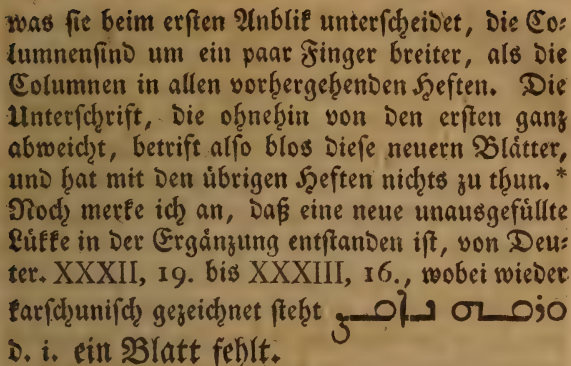 was ſie beim erſten Anblik unterſcheidet, die Co⸗
lumnenſind um ein paar Finger breiter, als die
Columnen in allen vorhergehenden Heften. Die
Unterſchrift, die ohnehin von den erſten ganz
abweicht, betrift alſo blos dieſe neuern Blätter,
und hat mit den übrigen Heften nichts zu thun. *
Noch merke ich an, daß eine neue unausgefüllte
Lükke in der Ergänzung entſtanden iſt, von Deu⸗
ter. XXXII, 19. bis XXXIII, 16., wobei wieder
karſchuniſch gezeichnet ſteht ܘܪܩܗ ܢܐܩܨ
d. i. ein Blatt fehlt.